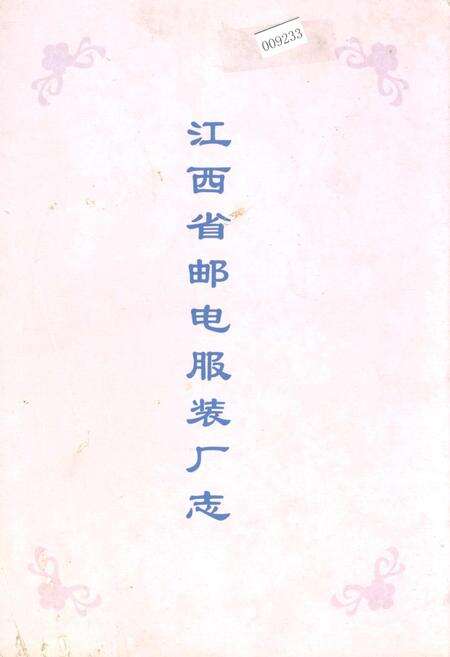 009233
江西省邮电服装厂志